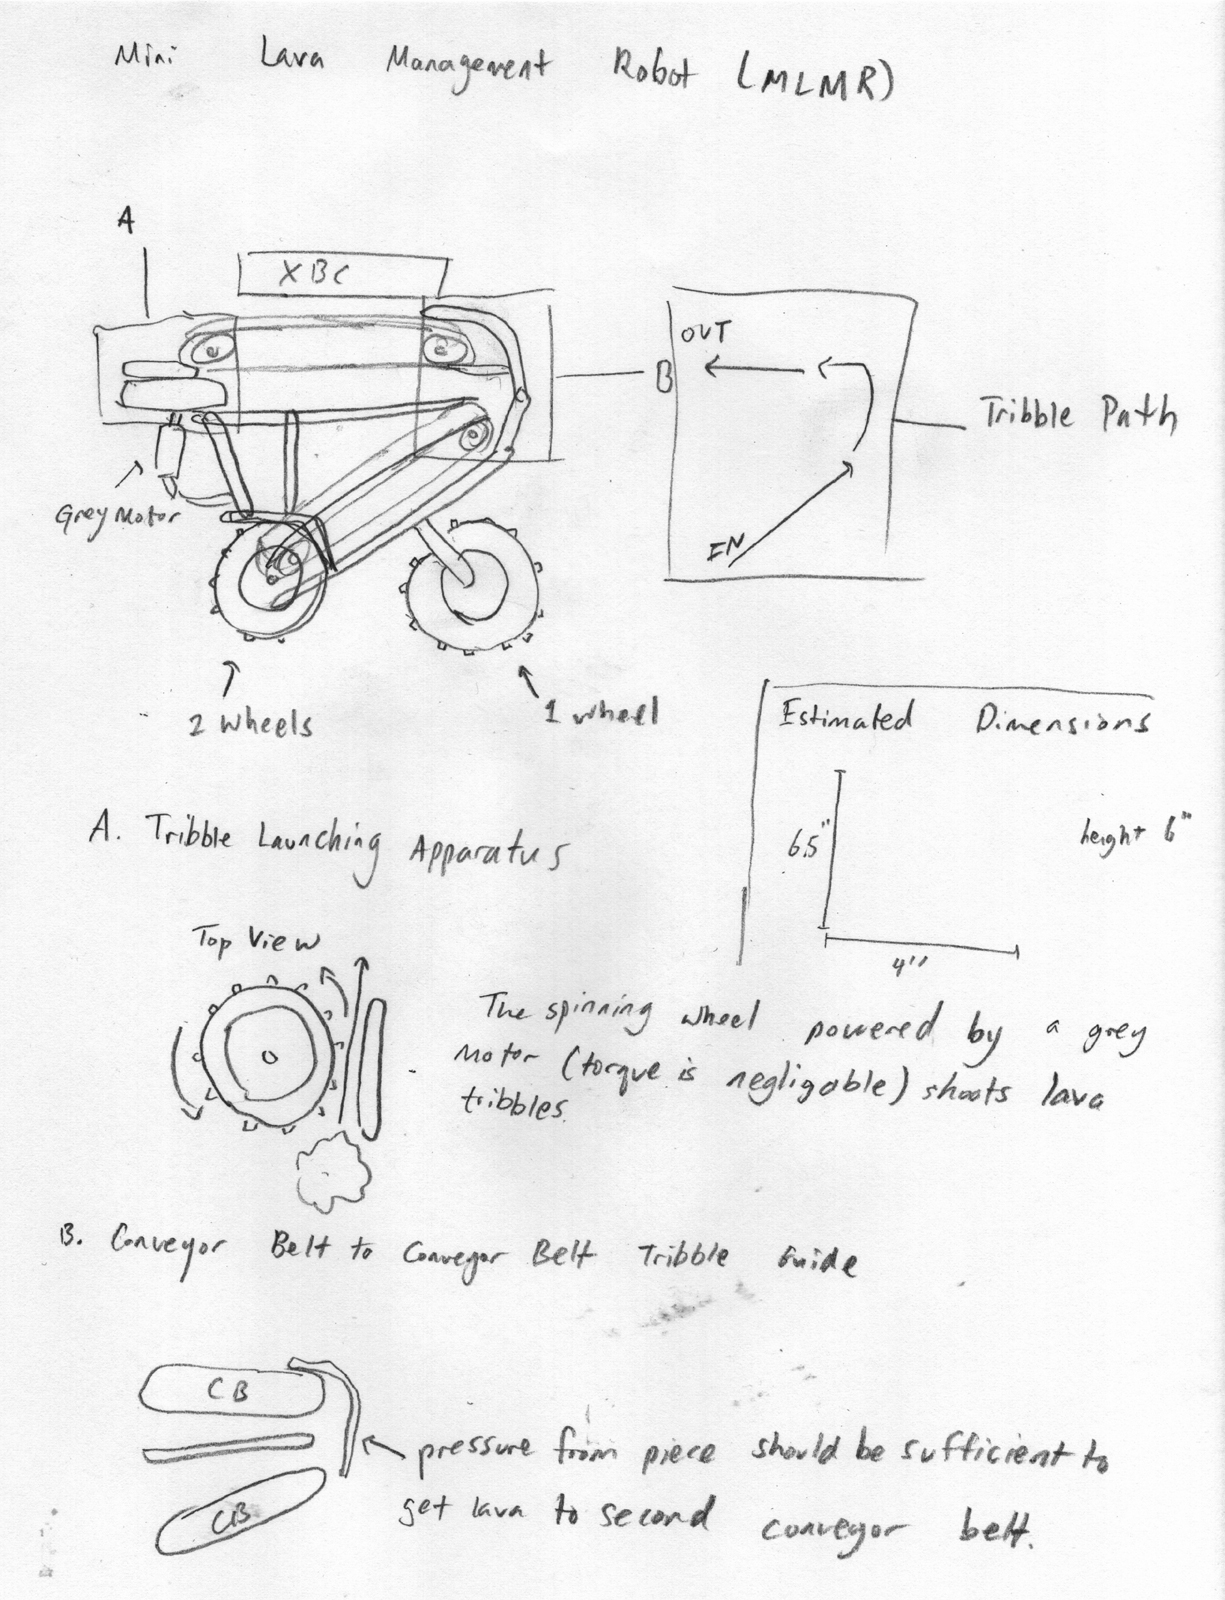 Mini Lava Management Robot (MLMR)
A
XBC
OUT
B
Tribble Path
Grey Motor
IN
2 wheels
1 wheel
Estimated Dimensions
6.5"
height 6"
4"
A. Tribble Launching Apparatus
Top View
The spinning wheel powered by a grey
motor (torque is negligable) shoots lava
tribbles.
B. Conveyor Belt to Conveyor Belt Tribble Guide
CB
pressure from piece should be sufficient to
CB
get lava to second conveyor belt.